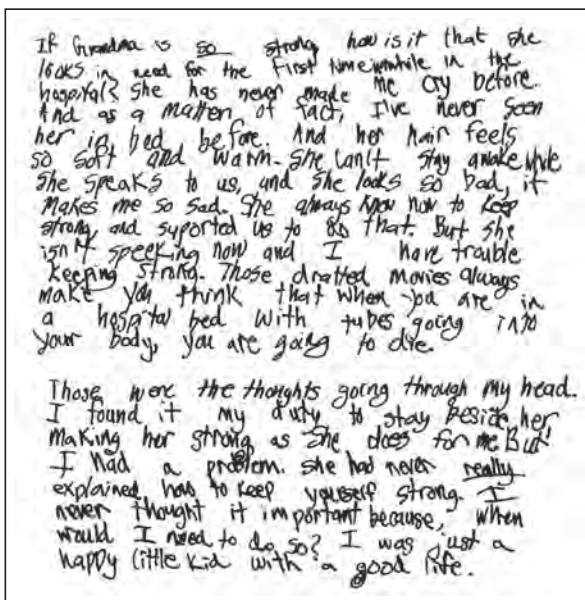 If Grandma is so strong how is it that she
looks in need for the first time while in the
hospital? She has never made me cry before.
And as a matter of fact, I've never seen
her in bed before. And her hair feels
so soft and warm. She can't stay awake while
she speaks to us, and she looks so bad, it
makes me so sad. She always knew how to keep
strong, and suported us to do that. But she
isn't speeking now and I have trouble
keeping strong. Those dratted movies always
make you think that when you are in
a hospital bed with tubes going into
your body, you are going to die.

Those were the thoughts going through my head.
I found it my duty to stay beside her
making her strong as she does for me. But
I had a problem. She had never really
explained how to keep yourself strong. I
never thought it important because, when
would I need to do so? I was just a
happy little kid with a good life.